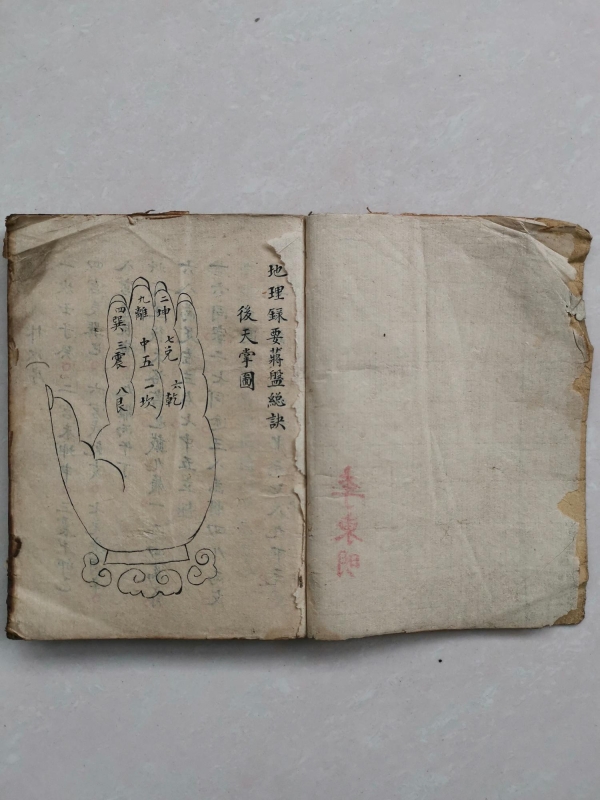 李東明
地理錄要蔣盤總訣
後天掌圖
二坤
七兌
六乾
九離
中五
一坎
四巽
三震
八艮